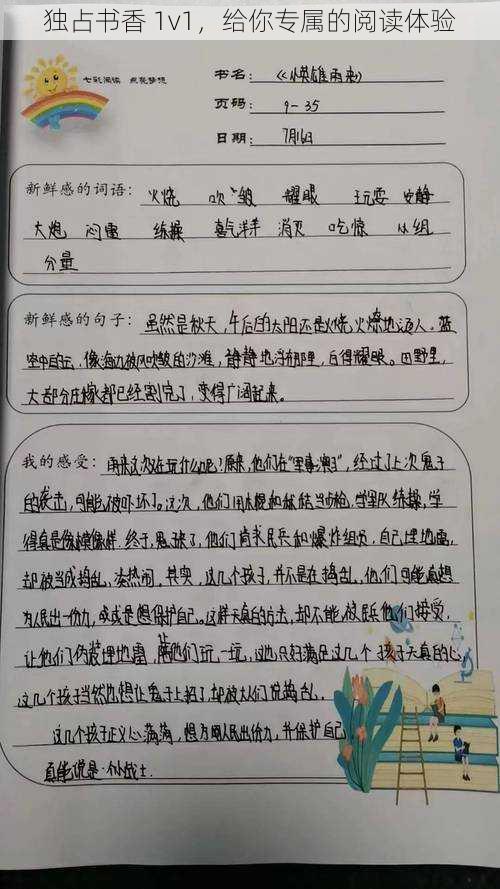 独占书香 1v1，给你专属的阅读体验
七彩阅读 点亮梦想
书名： 《小英雄雨来》
页码： 9-35
日期： 7月16日
新鲜感的词语： 火烧 吹皱 耀眼 玩耍 安静
大炮 闷雷 练操 喜气洋洋 消灭 吃惊 小组
分量
新鲜感的句子： 虽然是秋天，午后的太阳还是火烧火燎地逼人。蓝
空中的云，像海边被风吹皱的沙滩，静静地浮在那里，白得耀眼。田野里，
大部分庄稼都已经割完了，变得广阔起来。
我的感受： 雨来这次在玩什么呢？原来，他们在“军事演习”，经过了上次鬼子
的袭击，可能被吓坏了。这次，他们用木棍和秫秸当成枪，学军队练操，学
得真是像模像样。终于，鬼子来了，他们请求民兵和爆炸组员，自己埋地雷，
却被当成捣乱、凑热闹，其实，这几个孩子，并不是在捣乱，他们可能真想
为人民出一份力，或是想保护自己。这样天真的方法，却不能被民兵他们接受，
让他们伪装埋地雷，陪他们玩一玩，这也只好满足这几个孩子天真的心，
这几个孩子当然也想让鬼子上招了却被大人们说捣乱。
这几个孩子正义心满满，想为人民出份力，并保护自己
真能说是一个小战士.